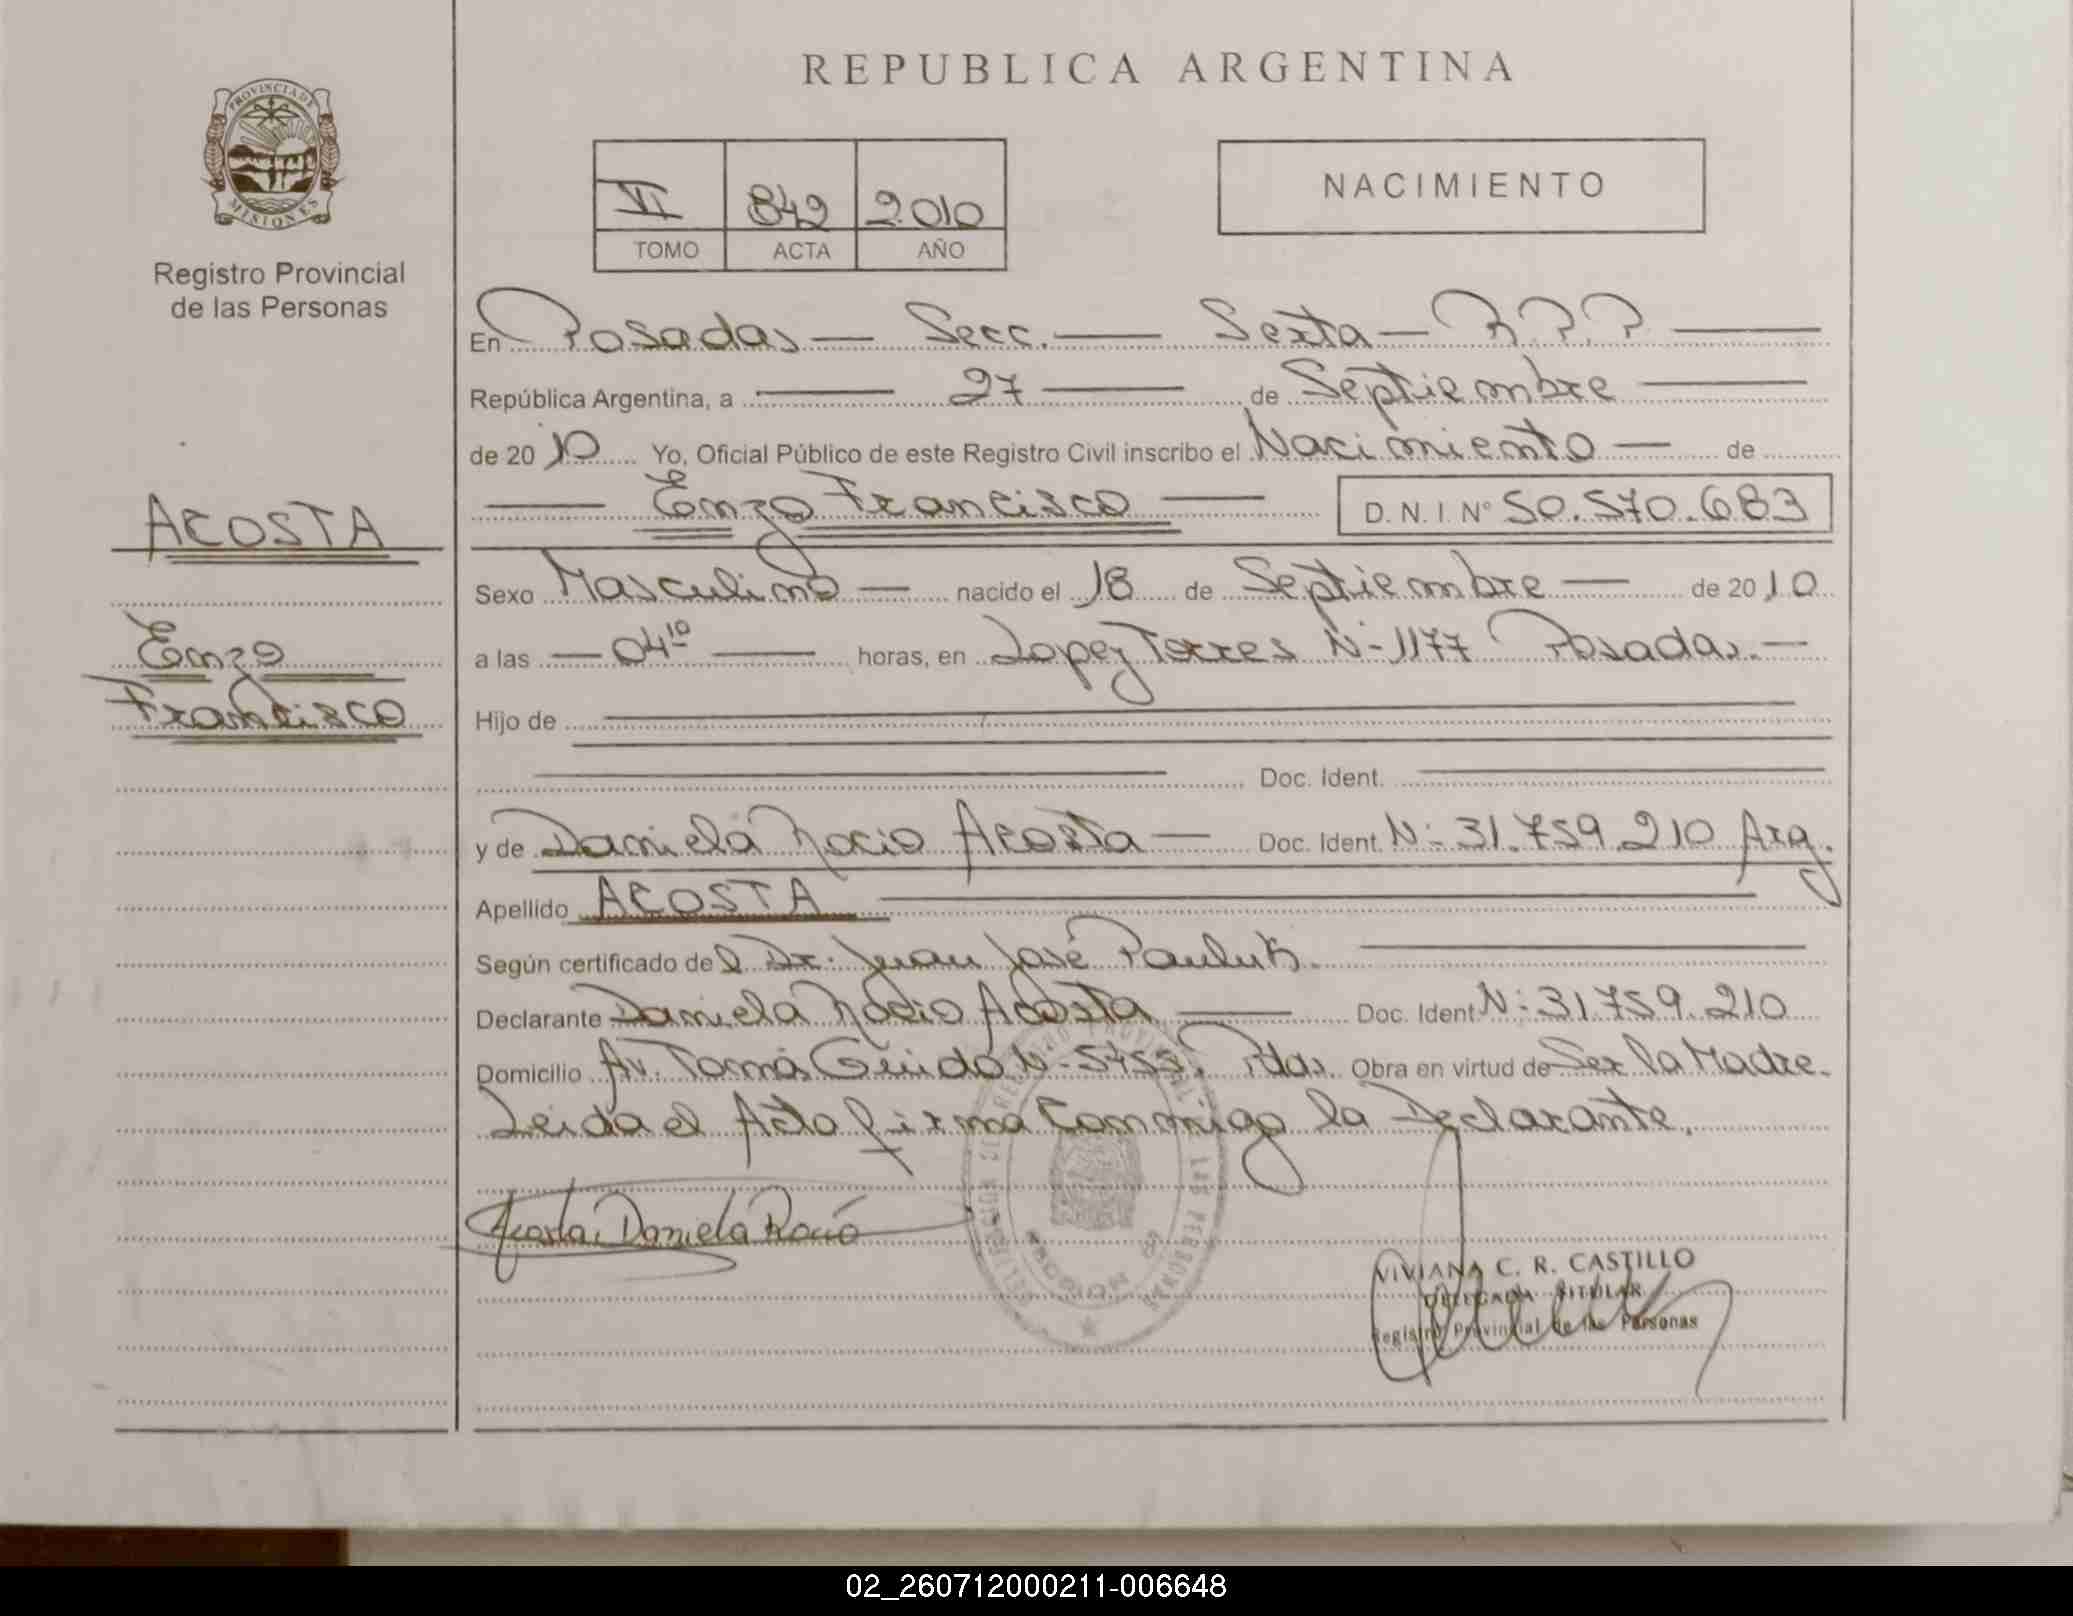 REPUBLICA ARGENTINA
PROVINCIA DE
MISIONES
Registro Provincial
de las Personas
VI 842 2010
TOMO ACTA AÑO
NACIMIENTO
En Posadas — Secc. — Sexta — R.P.P.
República Argentina, a — 27 — de Septiembre —
de 2010 Yo, Oficial Público de este Registro Civil inscribo el Nacimiento — de
— Enzo Francisco — D. N. I. Nº 50.570.683
ACOSTA
Enzo
Francisco
Sexo Masculino — nacido el 18 de Septiembre — de 2010
a las — 04 10 — horas, en Lopez Torres N- 1177 Posadas. —
Hijo de
Doc. Ident.
y de Daniela Rocio Acosta — Doc. Ident. N: 31.759.210 Arg.
Apellido ACOSTA
Según certificado del Dr. Juan José
Declarante Daniela Rocio Acosta — Doc. Ident N: 31.759.210
Domicilio Av. Tomás Guido N- Pdas. Obra en virtud de Ser la Madre.
Leida el Acta firma Conmigo la Declarante.
Acosta Daniela Rocío
VIVIANA C. R. CASTILLO
DELEGADA TITULAR
Registro Provincial de las Personas
02_260712000211-006648